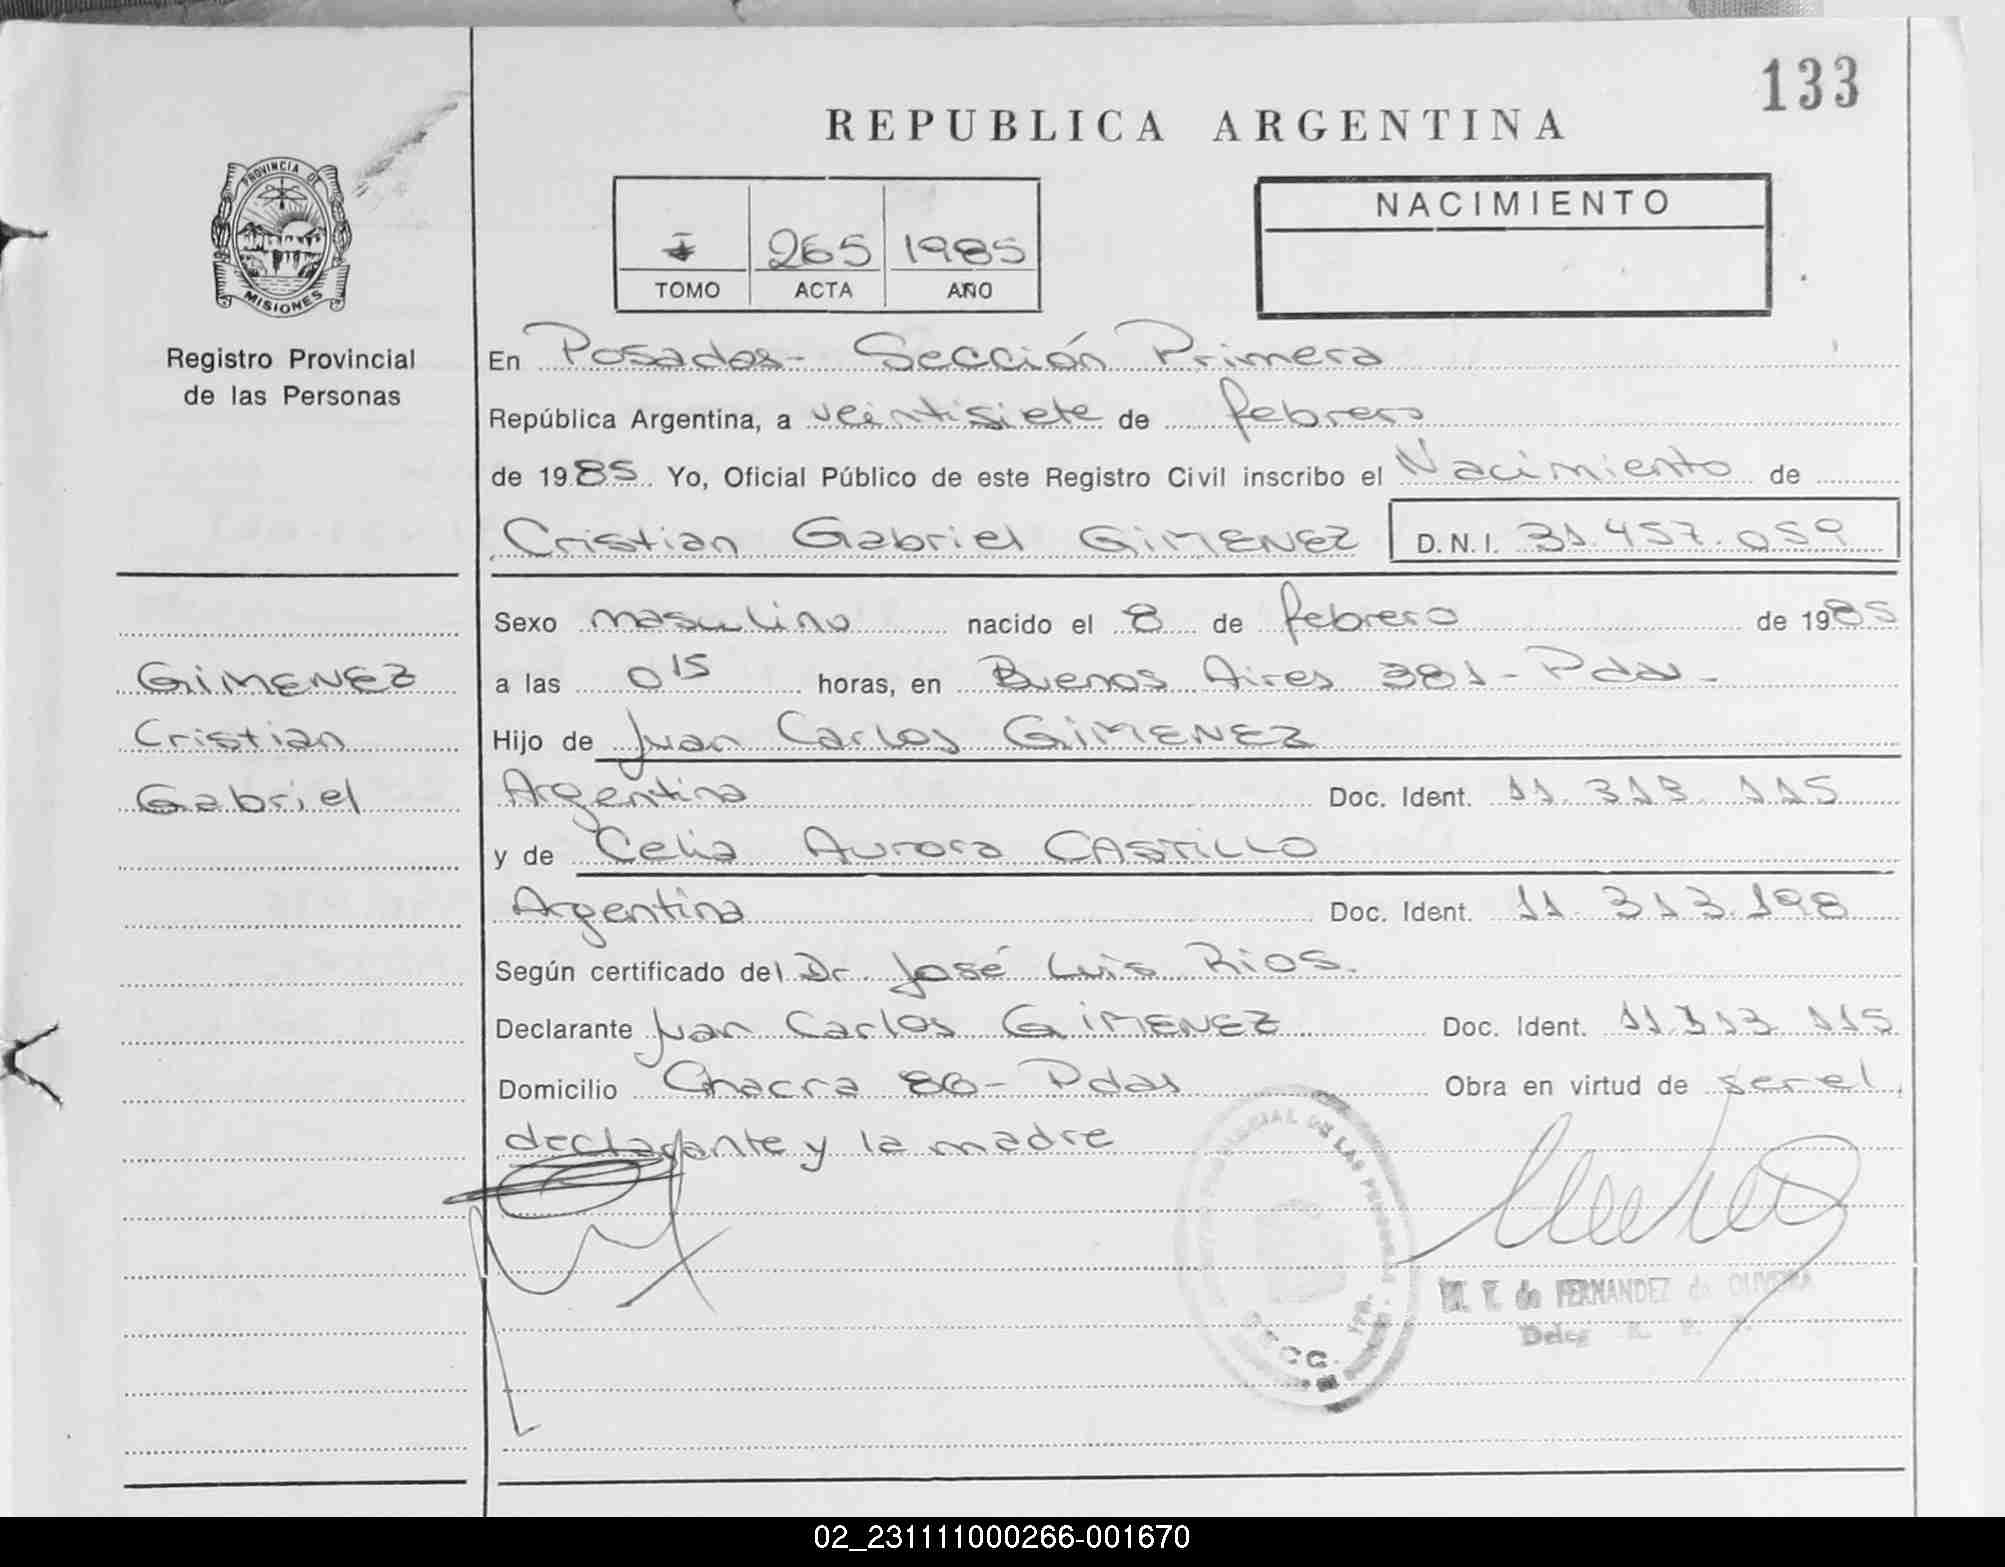 133
REPUBLICA ARGENTINA
PROVINCIA DE
MISIONES
Registro Provincial
de las Personas
I 265 1985
TOMO ACTA AÑO
NACIMIENTO
En Posadas - Sección Primera
República Argentina, a veintisiete de febrero
de 1985. Yo, Oficial Público de este Registro Civil inscribo el Nacimiento de
Cristian Gabriel GIMENEZ D.N.I. 31.457.059
Sexo masculino nacido el 8 de febrero de 1985
a las 0 15 horas, en Buenos Aires 381 - Pdas -
Hijo de Juan Carlos GIMENEZ
Argentina Doc. Ident. 11.313.115
y de Celia Aurora CASTILLO
Argentina Doc. Ident. 11.313.198
Según certificado del Dr. José Luis Rios.
Declarante Juan Carlos GIMENEZ Doc. Ident. 11.313.115
Domicilio Chacra 86 - Pdas Obra en virtud de ser el
declarante y la madre
GIMENEZ
Cristian
Gabriel
DE LAS
de FERNANDEZ de OLIVEIRA
Deleg
02_231111000266-001670